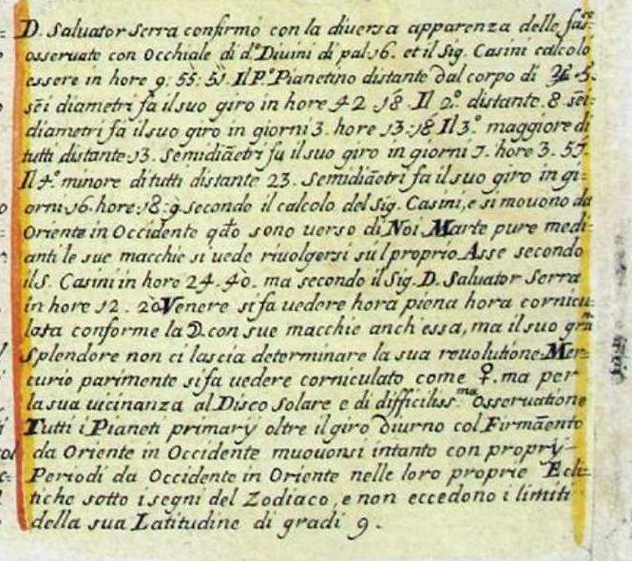 D. Salvator Serra confirmò con la diversa apparenza delle fasce
osservate con Occhiale di d.º Divini di pal. 16. et il Sig. Casini calcolò
essere in hore 9: 55: 51. Il P.º Pianetino distante dal corpo di ♃ 5.
sẽi diametri fà il suo giro in hore 42 .18. Il 2.º distante. 8 sẽi=
diametri fa il suo giro in giorni 3. hore 13.18 Il 3.º maggiore di
tutti distante. 13. Semidiãetri fa il suo giro in giorni 7. hore 3. 57
Il 4.º minore di tutti distante 23. Semidiãetri fa il suo giro in gi=
orni .16. hore .18: 9 secondo il calcolo del Sig. Casini, e si movono da
Oriente in Occidente qdõ sono verso di Noi. Marte pure medi=
anti le sue macchie si vede rivolgersi sùl proprio Asse secondo
il S. Casini in hore 24. 40. ma secondo il Sig. D. Salvator Serra
in hore 12. 20. Venere si fa vedere hora piena hora cornicu=
lata conforme la ☽. con sue macchie anch'essa, ma il suo grã
Splendore non ci lascia determinare la sua revolutione. Mer=
curio parimente si fa vedere corniculato come ♀. ma per
la sua vicinanza al Disco Solare e di difficiliss.ma Osservatione
Tutti i Pianeti primarÿ oltre il giro diurno col Firmãento
da Oriente in Occidente muovonsi intanto con proprÿ
Periodi da Occidente in Oriente nelle loro proprie Ecli=
tiche sotto i segni del Zodiaco, e non eccedono i limiti
della sua Latitudine di gradi 9.